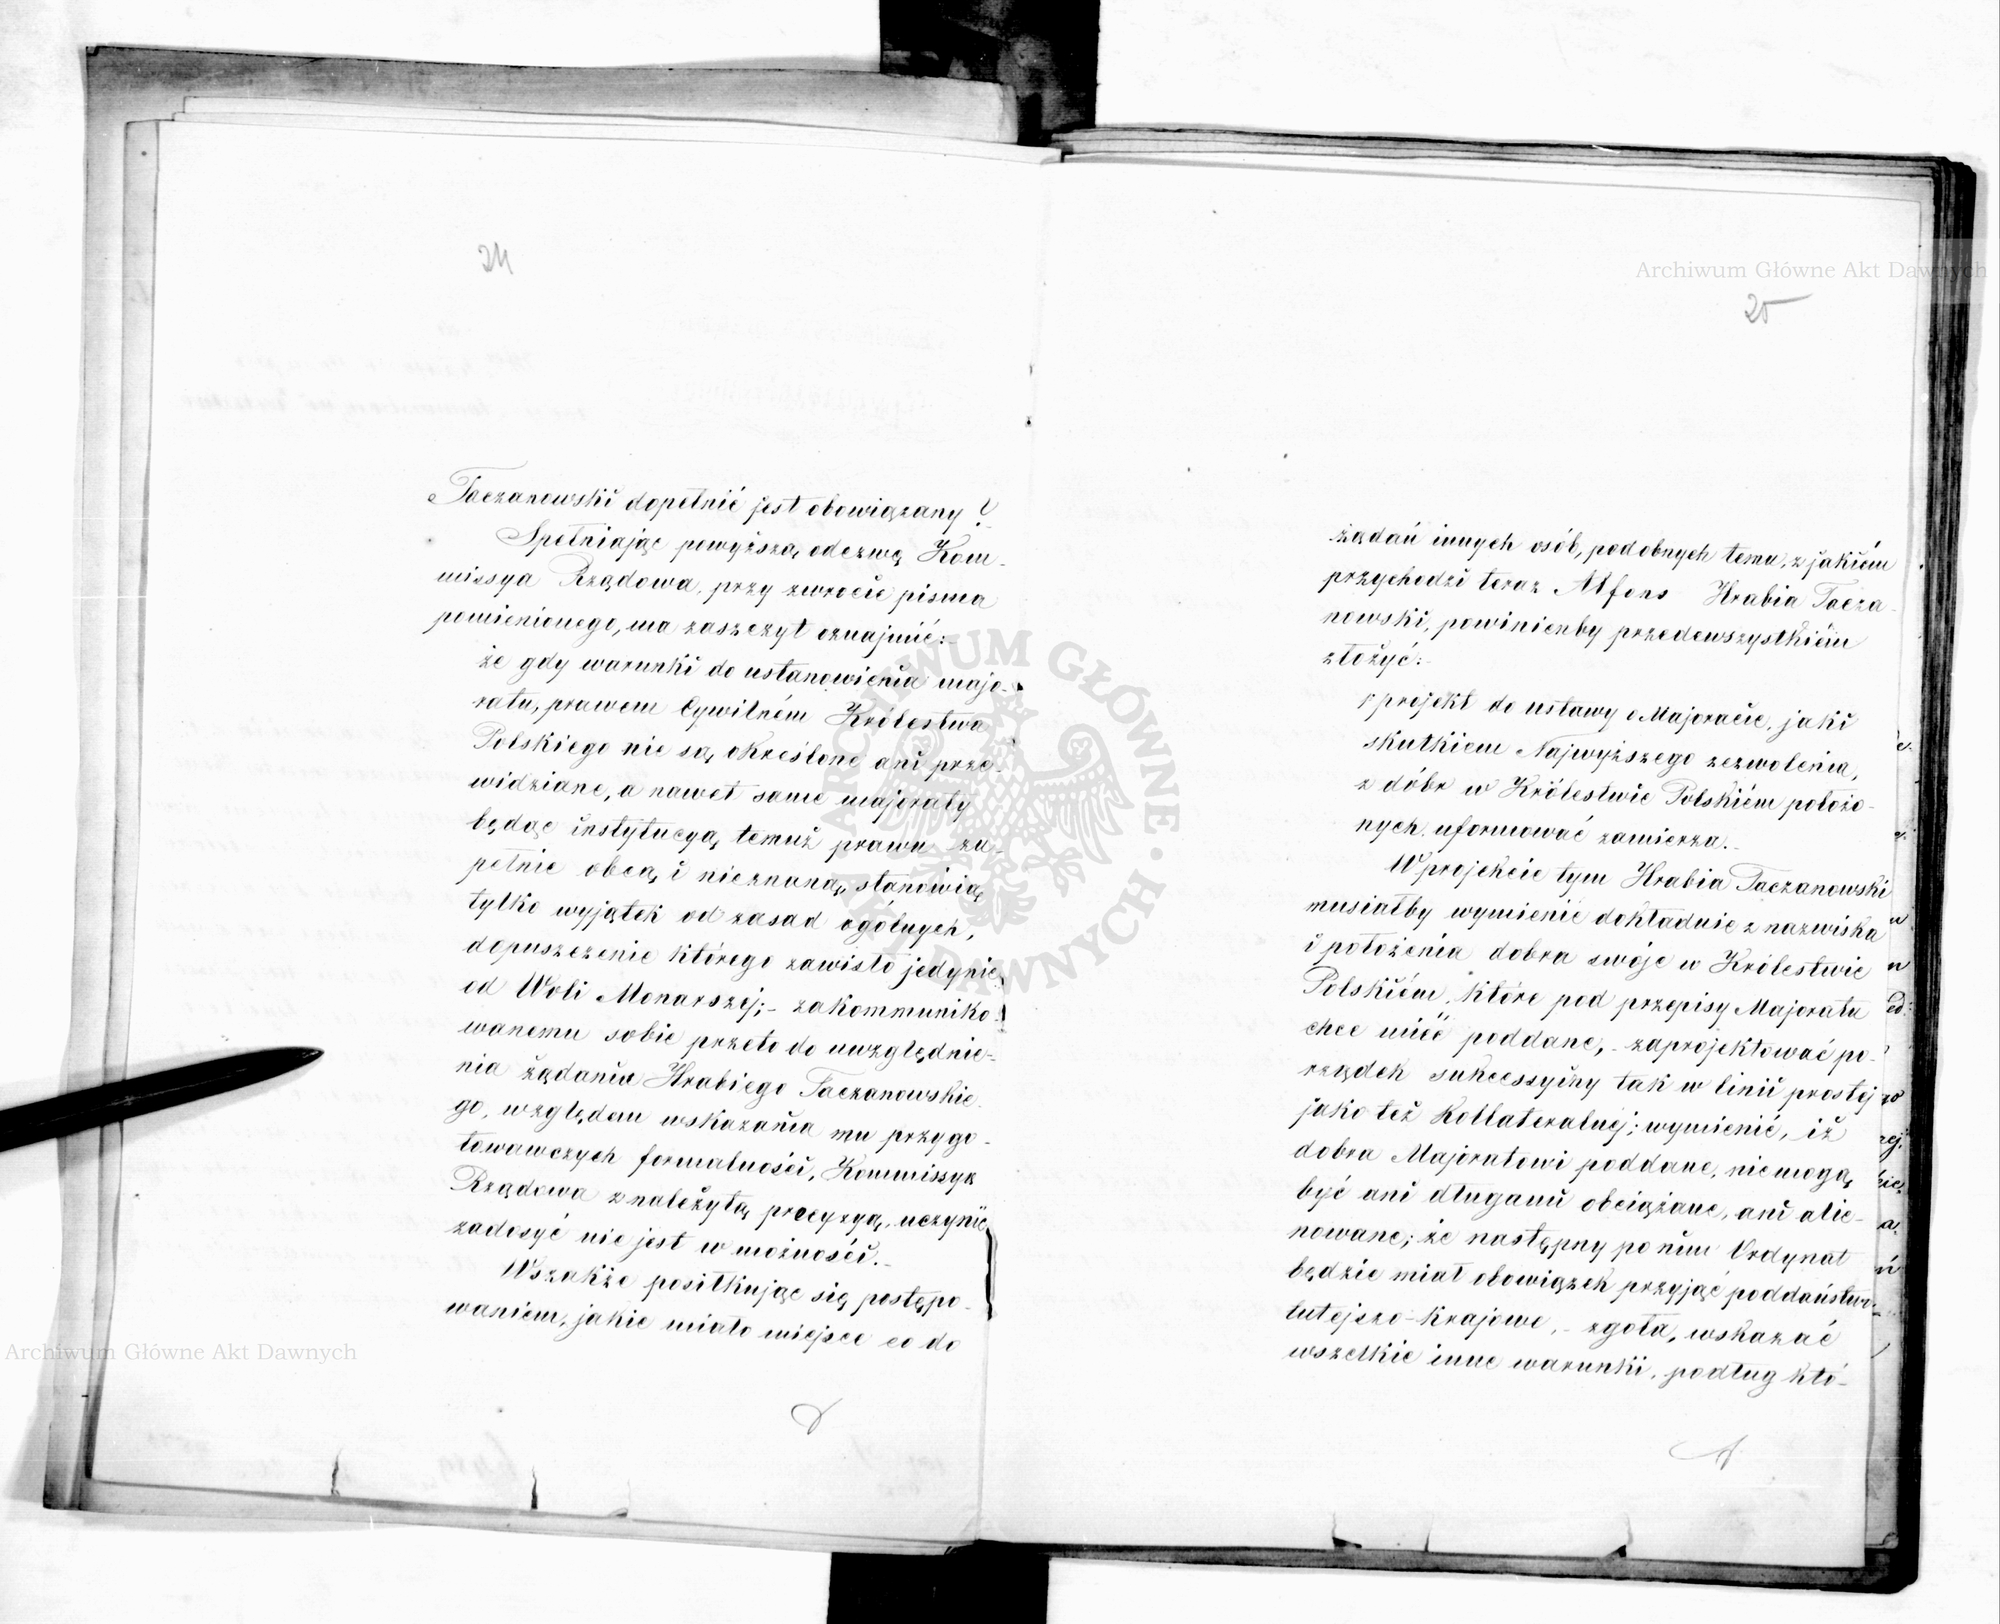 24
Taczanowski dopełnić jest obowiązany?
Spełniając powyższą odezwę Kom-
missya Rządowa, przy zwrocie pisma
pomienionego, ma zaszczyt oznajmić:
że gdy warunki do ustanowienia majo-
ratu, prawem Cywilném Królestwa
Polskiego nie są określone ani prze-
widziane, a nawet same majoraty
będąc instytucyą temuż prawu zu-
pełnie obcą i nieznaną, stanowią
tylko wyjątek od zasad ogólnych,
dopuszczenie którego zawisło jedynie
od Woli Monarszej;- zakommuniko-
wanemu sobie przeto do uwzględnie-
nia żądaniu Hrabiego Taczanowskie-
go, względem wskazania mu przygo-
towawczych formalności, Kommissya
Rządowa z należytą precyzyą, uczynić
zadosyć nie jest w możności.-
Wszakże posiłkując się postępo-
waniem, jakie miało miejsce co do
25
żądań innych osób, podobnych temu, z jakiém
przychodzi teraz Alfons Hrabia Tacza-
nowski, powinienby przedewszystkiém
złożyć:-
projekt do ustawy o Majoracie, jaki
skutkiem Najwyższego zezwolenia,
z dóbr w Królestwie Polskiém położo-
nych uformować zamierza.-
W projekcie tym Hrabia Taczanowski
musiałby wymienić dokładnie z nazwiska
i położenia dobra swoje w Królestwie
Polskiém, które pod przepisy Majoratu
chce mieć poddane,- zaprojektować po-
rządek sukcessyiny tak w linii prostej
jako też Kollateralnej; wymienić, iż
dobra Majoratowi poddane, nie mogą
być ani długami obciążane, ani alie-
nowane; że następny po nim Ordynat
będzie miał obowiązek przyjąć poddaństwo
tutejszo-krajowe,- zgoła, wskazać
wszelkie inne warunki, podług któ-
Archiwum Główne Akt Dawnych
Archiwum Główne Akt Dawnych
ARCHIWUM GŁÓWNE AKT DAWNYCH